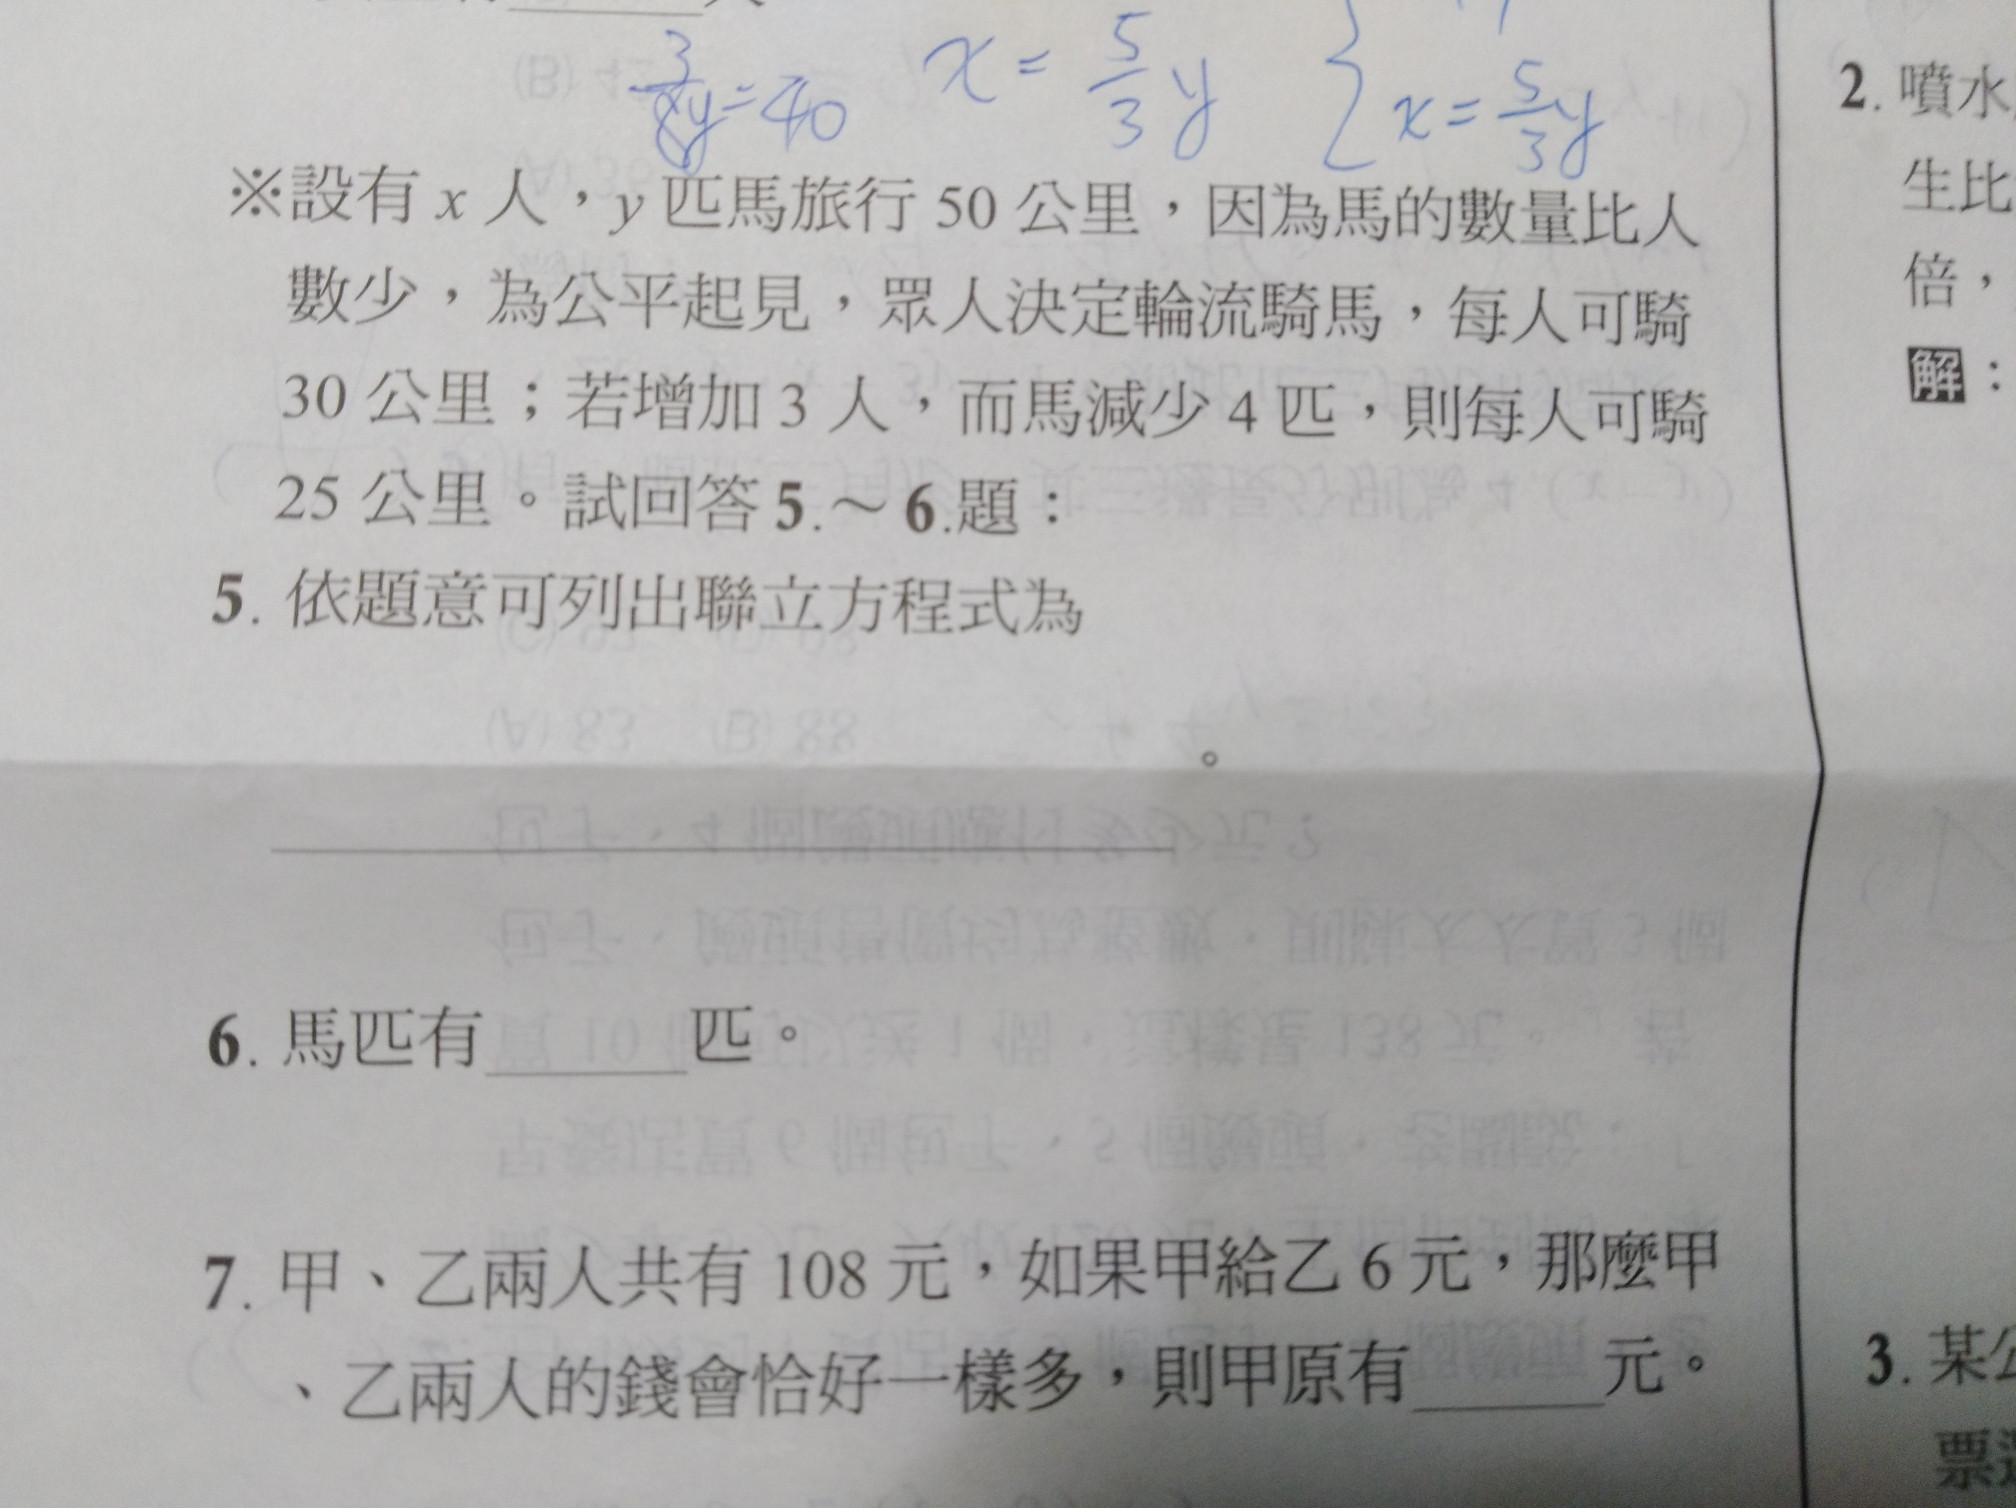 3/8 y = 40
x = 5/3 y
x = 5/3 y
※設有 x 人，y 匹馬旅行 50 公里，因為馬的數量比人
數少，為公平起見，眾人決定輪流騎馬，每人可騎
30 公里；若增加 3 人，而馬減少 4 匹，則每人可騎
25 公里。試回答 5.～ 6.題：
5. 依題意可列出聯立方程式為
。
6. 馬匹有______匹。
7. 甲、乙兩人共有 108 元，如果甲給乙 6 元，那麼甲
、乙兩人的錢會恰好一樣多，則甲原有______元。
2. 噴水
生比
倍，
解：
3. 某公
票